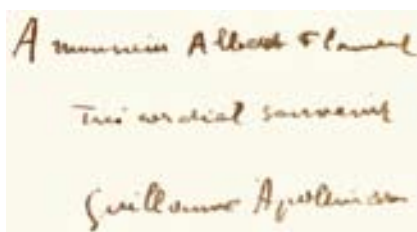 A monsieur Albert Flament
Très cordial souvenir
Guillaume Apollinaire